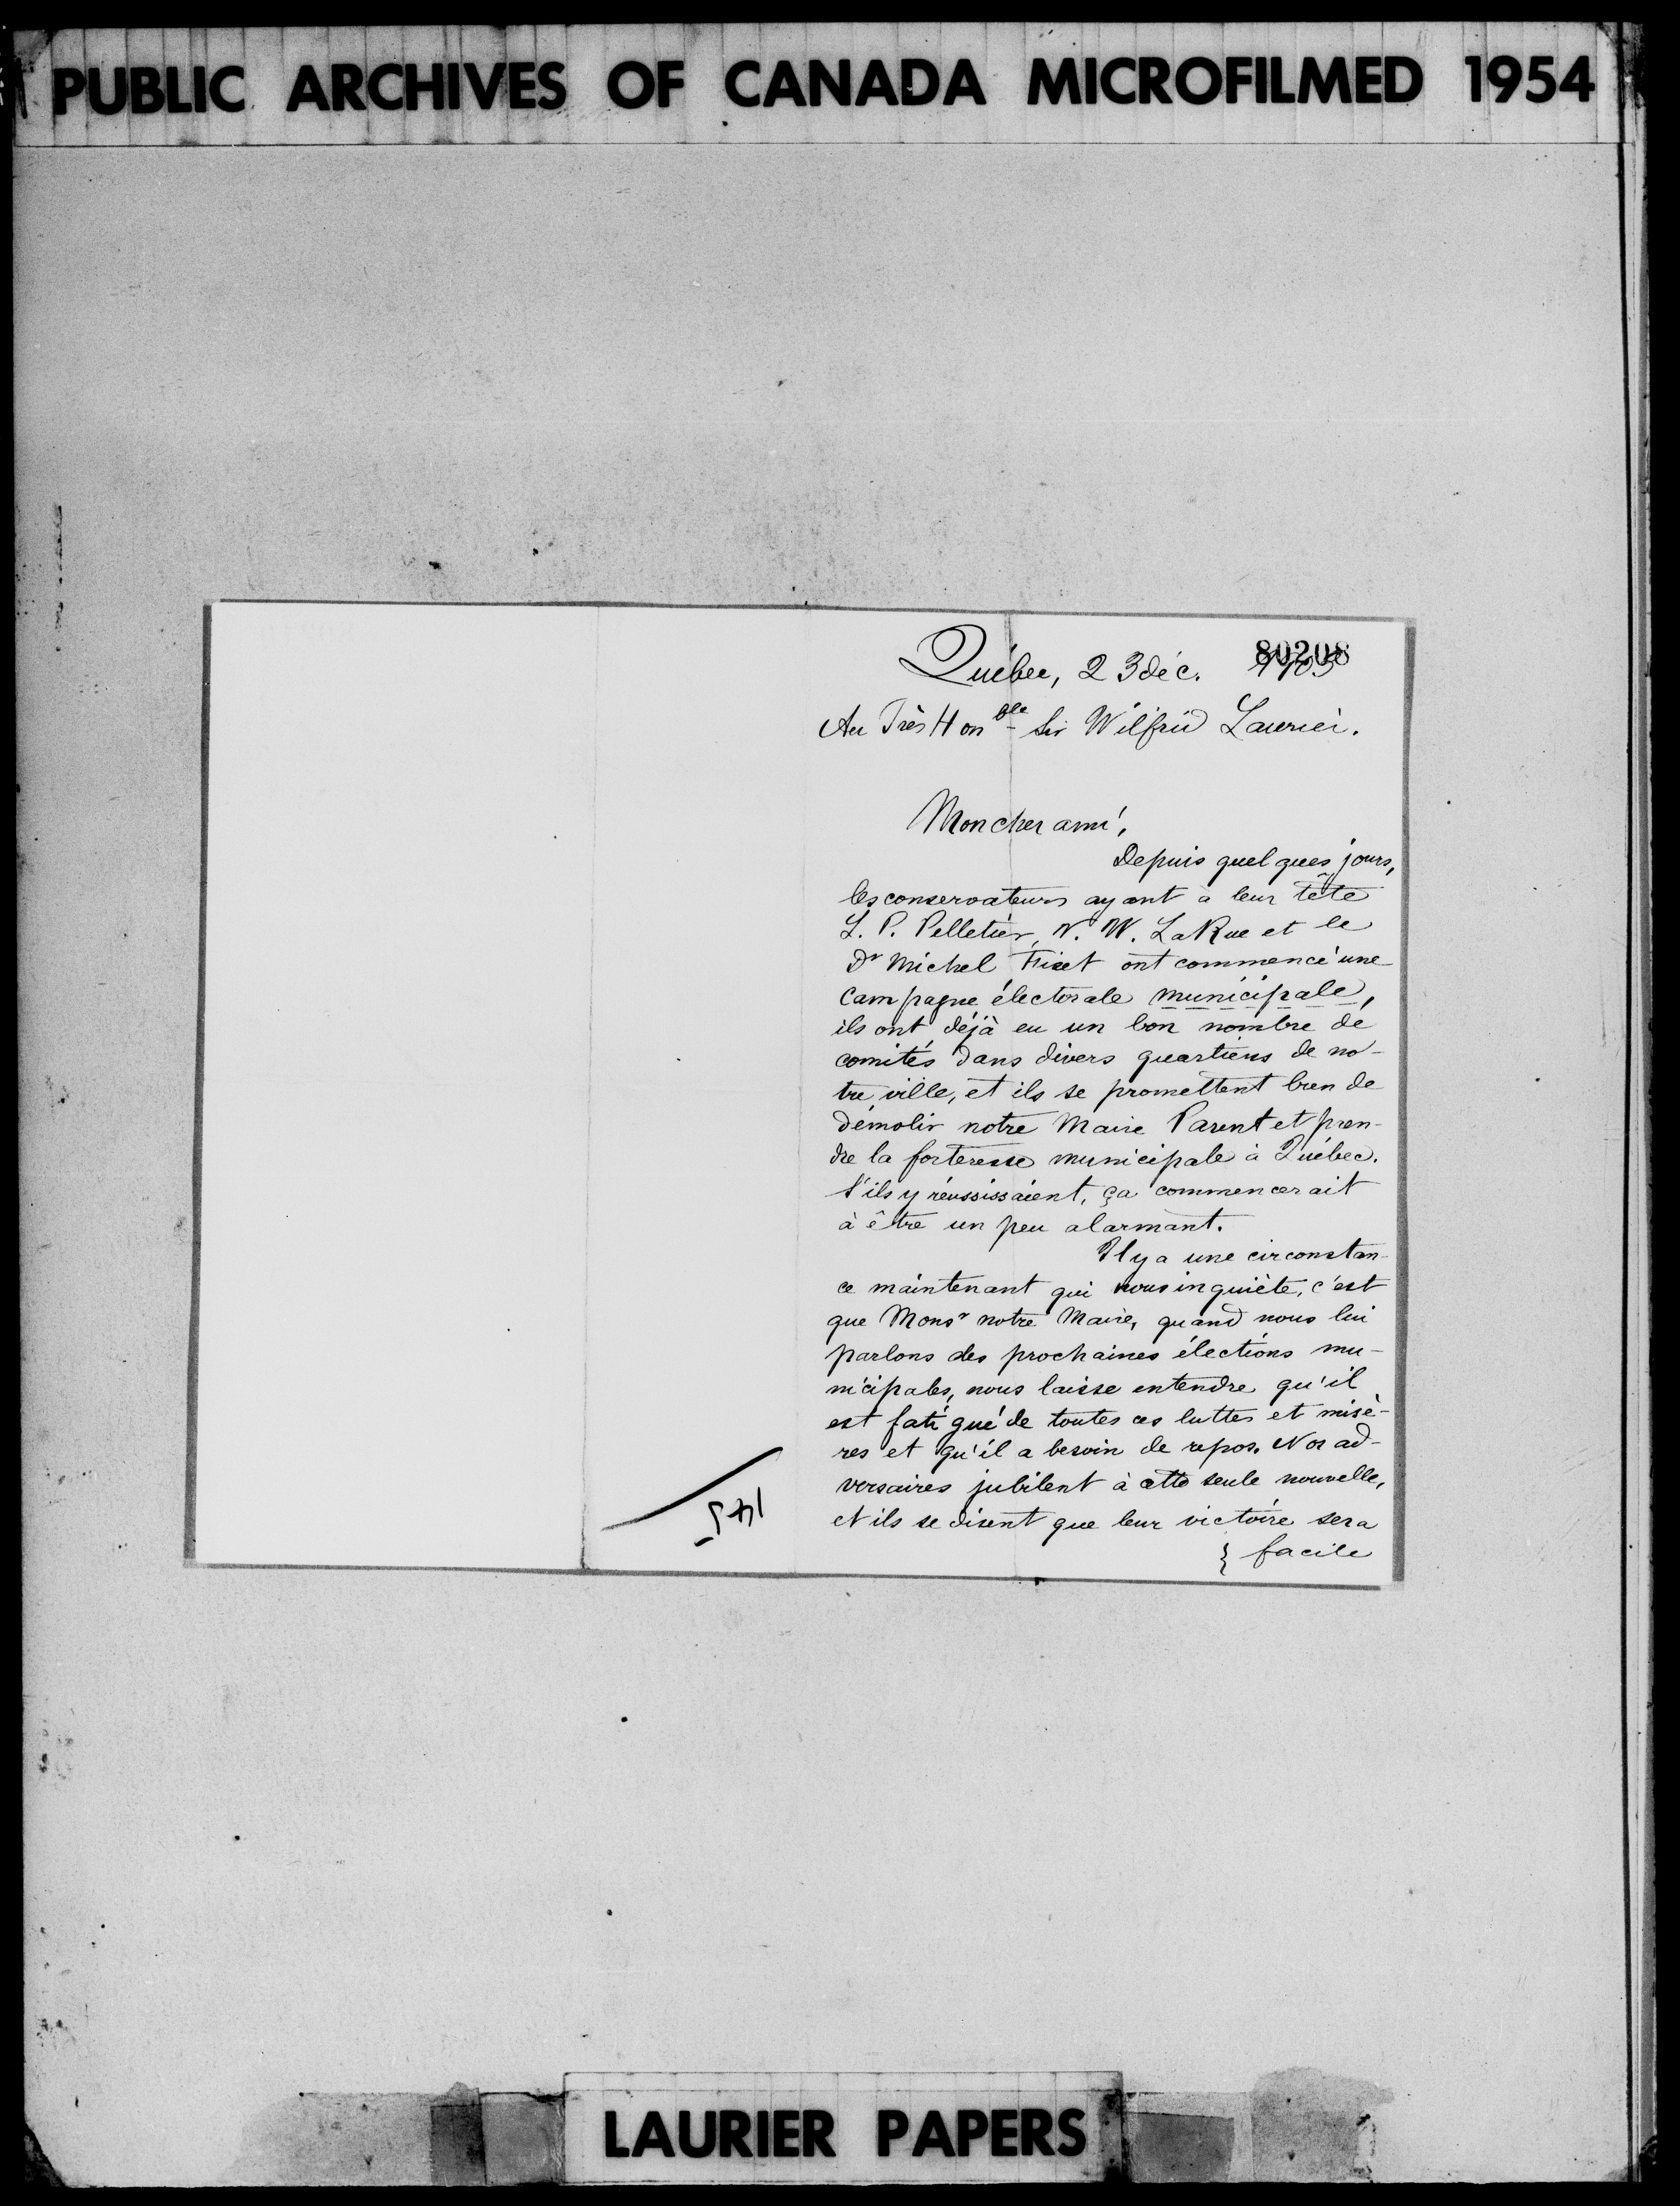 PUBLIC ARCHIVES OF CANADA MICROFILMED 1954
80208
Québec, 23 déc. 1905
Au Très Honble Sir Wilfrid Laurier.
Mon cher ami,
Depuis quelques jours,
les conservateurs ayant à leur tête
L. P. Pelletier, N. W. LaRue et le
Dr Michel Fiset ont commencé une
campagne électorale municipale,
ils ont déjà eu un bon nombre de
comités dans divers quartiers de no-
tre ville, et ils se promettent bien de
démolir notre Maire Parent et pren-
dre la forteresse municipale à Québec.
S'ils y réussissaient, ça commencerait
à être un peu alarmant.
Il y a une circonstan-
ce maintenant qui nous inquiète, c'est
que Monsr notre Maire, quand nous lui
parlons des prochaines élections mu-
nicipales, nous laisse entendre qu'il
est fatigué de toutes ces luttes et misè-
res et qu'il a besoin de repos. Nos ad-
versaires jubilent à cette seule nouvelle,
et ils se disent que leur victoire sera
} facile
LAURIER PAPERS